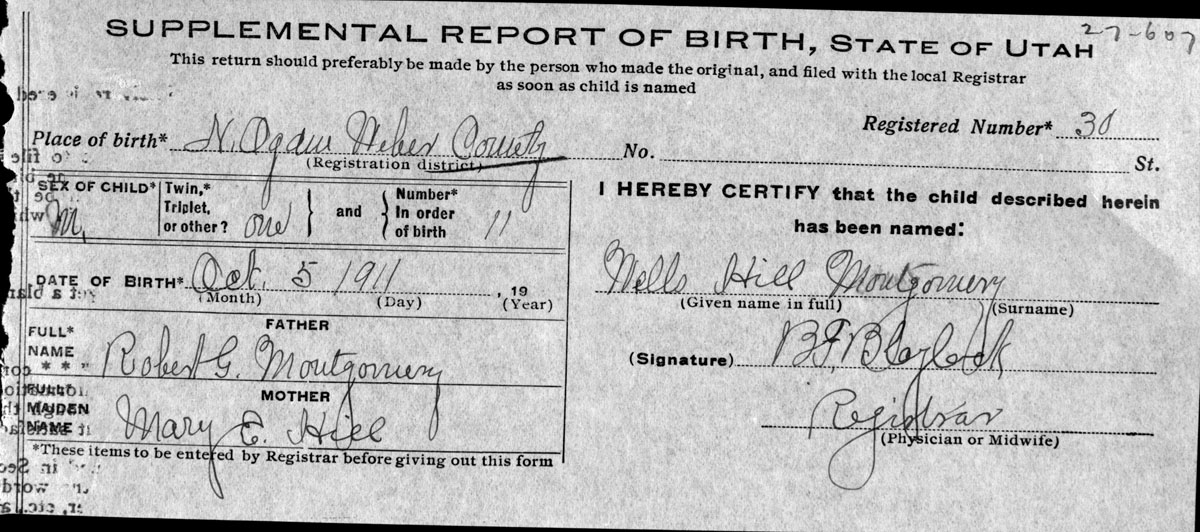 27-607
SUPPLEMENTAL REPORT OF BIRTH, STATE OF UTAH
This return should preferably be made by the person who made the original, and filed with the local Registrar
as soon as child is named
Registered Number* 30
Place of birth* N. Ogden Weber County No. St.
(Registration district)
SEX OF CHILD* M.
Twin,* Triplet, or other? one
and
Number* In order of birth 11
DATE OF BIRTH* Oct. 5 1911 , 19
(Month) (Day) (Year)
FATHER
FULL* NAME Robert G. Montgomery
MOTHER
FULL* MAIDEN NAME Mary E. Hill
*These items to be entered by Registrar before giving out this form
I HEREBY CERTIFY that the child described herein
has been named:
Wells Hill Montgomery
(Given name in full) (Surname)
(Signature) B.F. Blaylock
Registrar
(Physician or Midwife)